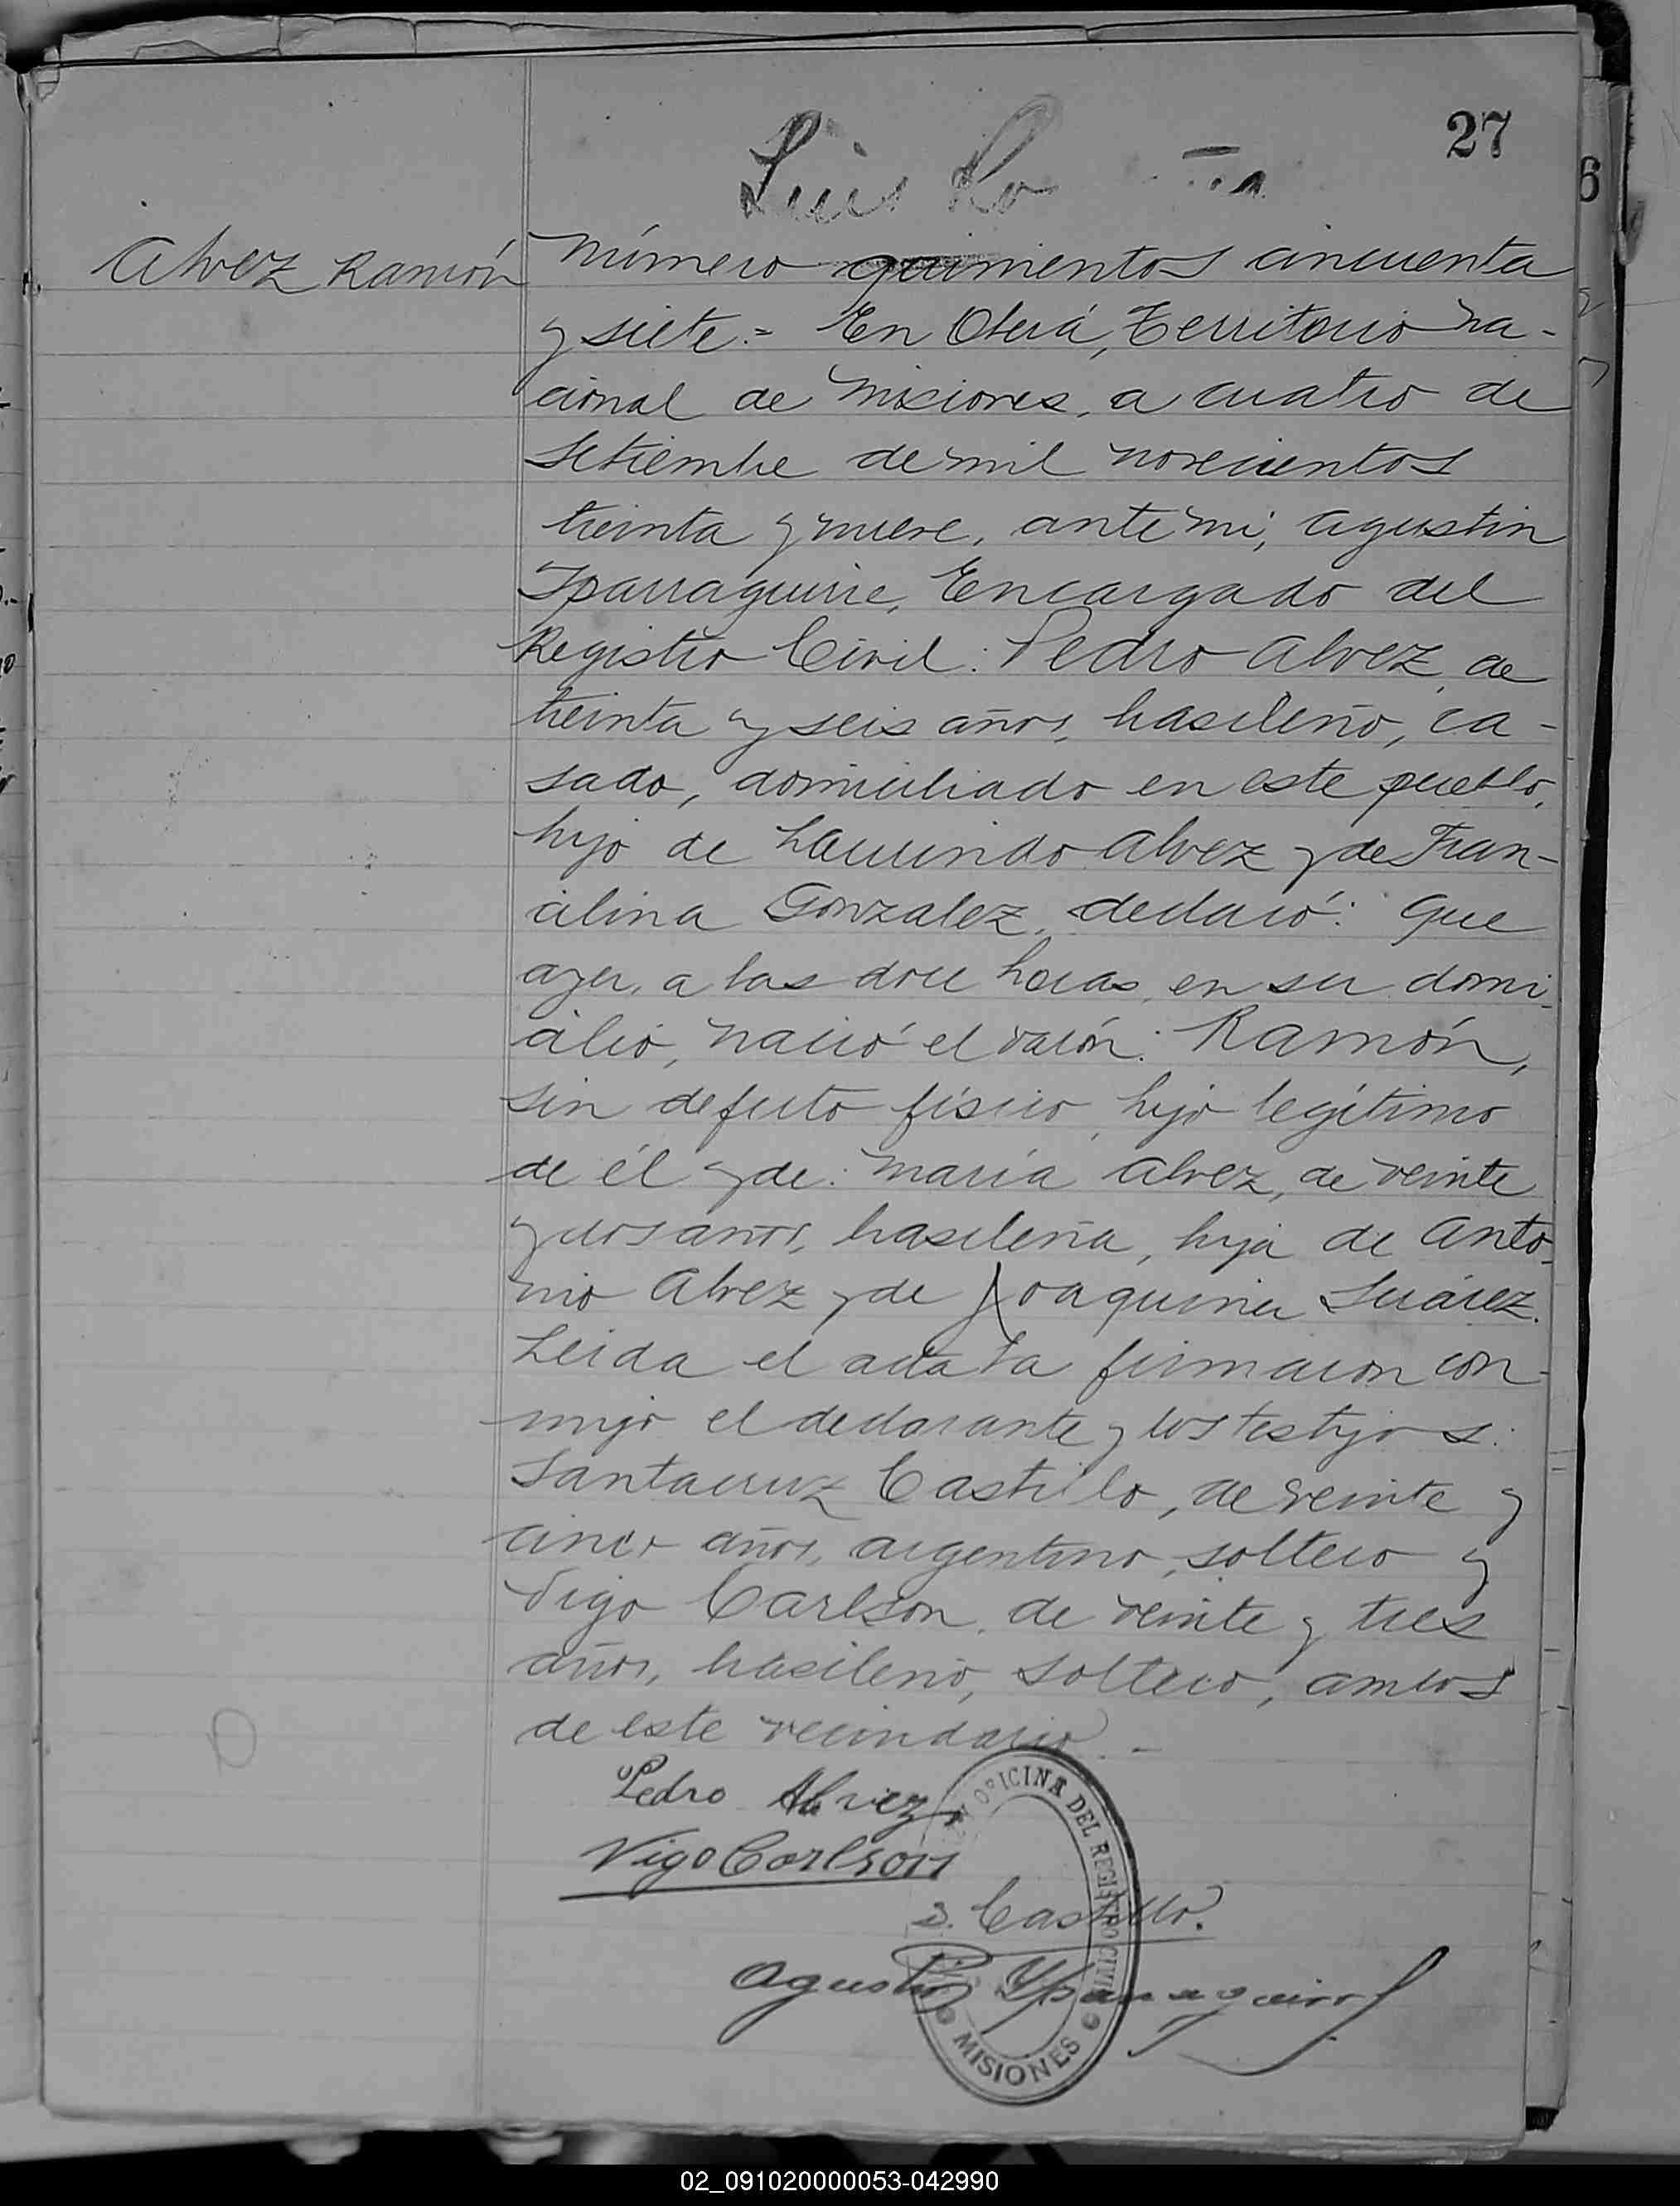 27
6
Luis Lo
Alvez Ramón
Número quinientos cincuenta
y siete.= En Oberá, Territorio Na-
cional de Misiones, a cuatro de
Setiembre de mil novecientos
treinta y nueve, ante mi, Agustin
Yparraguirre, Encargado del
Registro Civil: Pedro Alvez, de
treinta y seis años, brasileño, ca-
sado, domiciliado en este pueblo,
hijo de Laurindo Alvez y de Fran-
cilina Gonzalez, declaró: Que
ayer, a las doce horas, en su domi-
cilio, nació el varón: Ramón,
sin defecto físico, hijo legítimo
de él y de: María Alvez, de veinte
y dos años, brasileña, hija de Anto-
nio Alvez y de Joaquina Suárez.
Leida el acta la firmaron con-
migo el declarante y los testigos:
Santacruz Castillo, de veinte y
cinco años, argentino, soltero y
Vigo Carlson, de veinte y tres
años, brasileño, soltero, ambos
de este vecindario.-
Pedro Alvez
Vigo Carlson
S. Castillo.
Agustin P. Yparraguirre
OFICINA DEL REGISTRO CIVIL
MISIONES
02_091020000053-042990